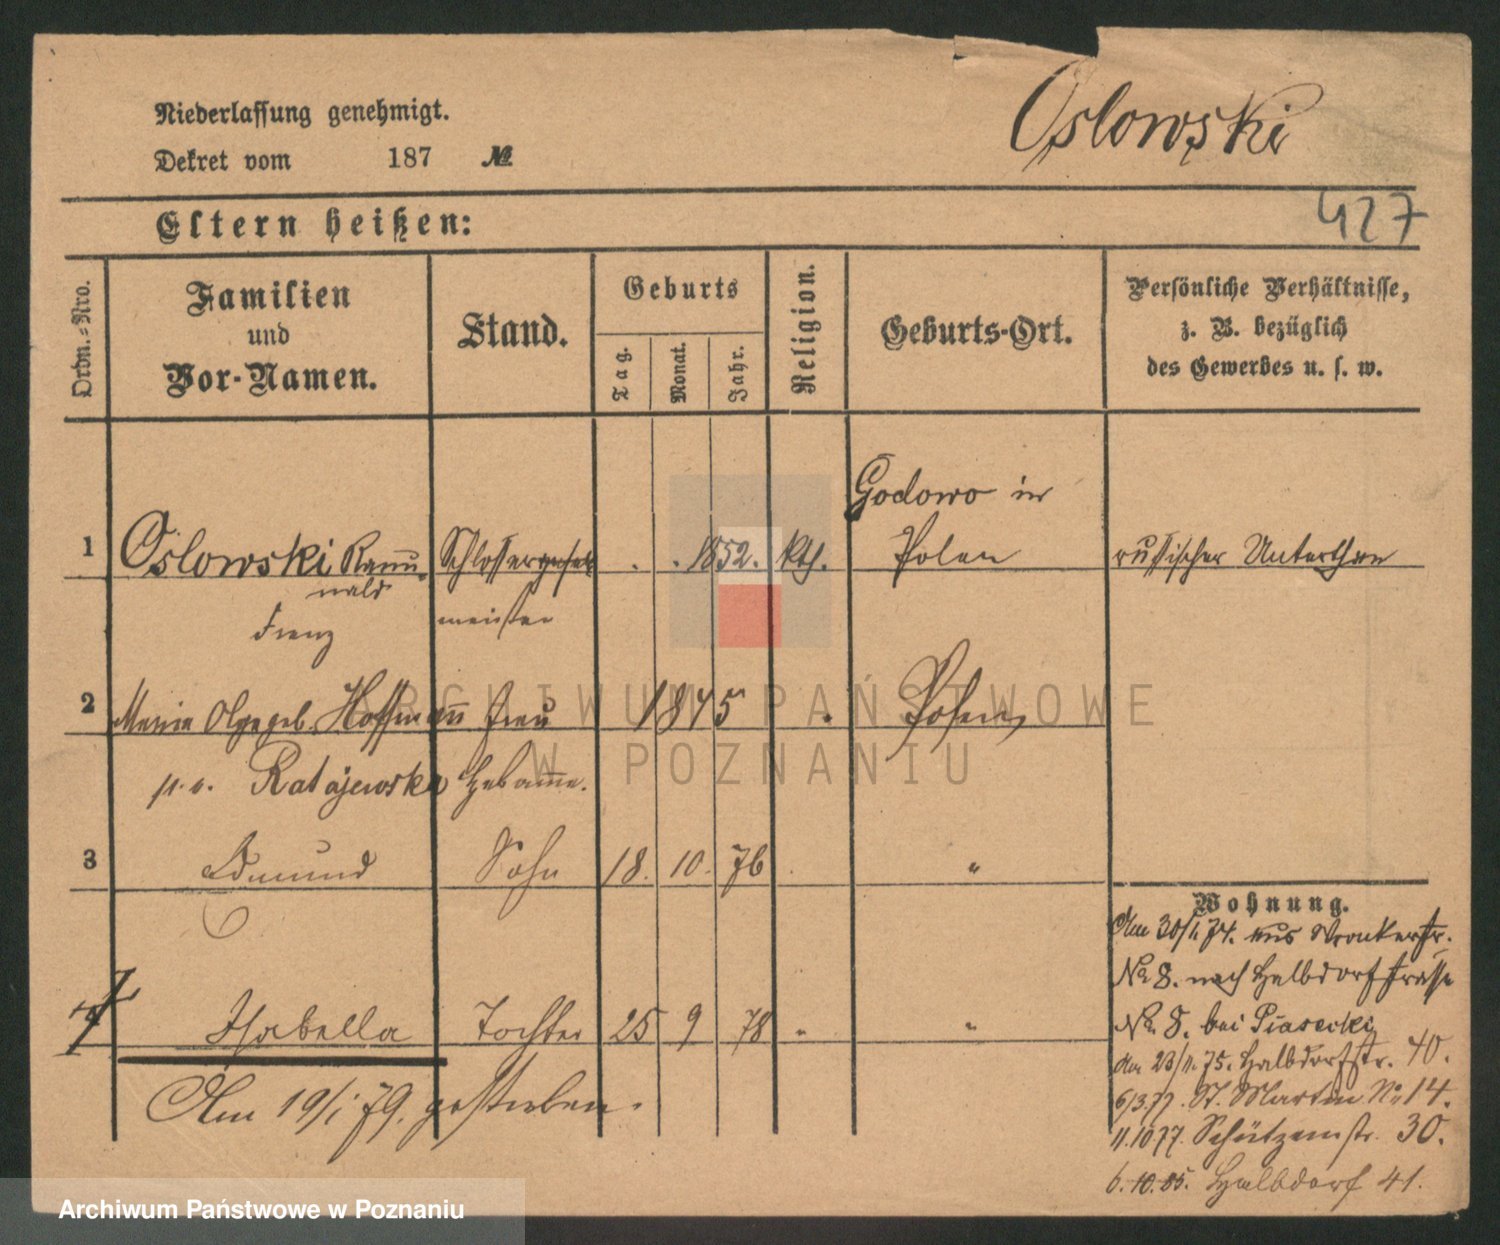 Niederlassung genehmigt.
Dekret vom 187 №
Oslowski
427
Eltern heißen:
Ordn.-Nro.
Familien
und
Vor-Namen.
Stand.
Geburts
Tag.
Monat.
Jahr.
Religion.
Geburts-Ort.
Persönliche Verhältnisse,
z. B. bezüglich
des Gewerbes u. s. w.
Godowo in
1 Oslowski Schlosser . . 1852. kth. Polen russischer Unterthan
meister
Franz
2 Maria Olga geb. Hoffmann Frau 1845 Posen
Ratajewska Hebamme.
3 Edmund Sohn 18. 10. 76 "
Wohnung.
Am 30/1.74. aus Wronkerstr.
№ 8. nach Halbdorfstrasse
4 Isabella Tochter 25 9 78 " "
№ 8. bei Piasecki
Am 23/11.75. Halbdorfstr. 40.
Am 19/1 79. gestorben.
6/3.77. St. Martin № 14.
11.10.77. Schützenstr. 30.
6.10.85. Halbdorf 41.
ARCHIWUM PAŃSTWOWE
W POZNANIU
Archiwum Państwowe w Poznaniu